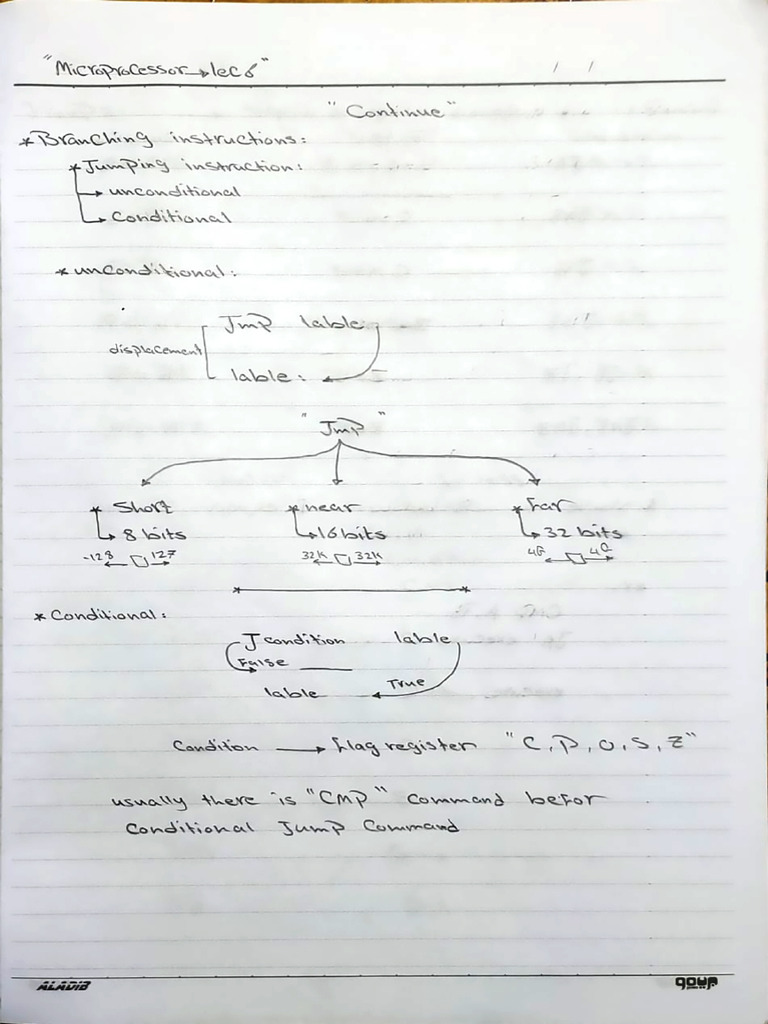 "Microprocessor → lec 6"
/ /
"Continue"
* Branching instructions:
* Jumping instruction:
→ unconditional
→ Conditional
* unconditional:
Jmp lable
displacement
lable:
"Jmp"
* Short * near * Far
→ 8 bits → 16 bits → 32 bits
-128 127 32K 32K 4G 4G
* Conditional:
J condition lable
False
lable True
Condition → flag register "C, P, O, S, Z"
usually there is "CMP" Command befor
Conditional Jump Command
ALADIB